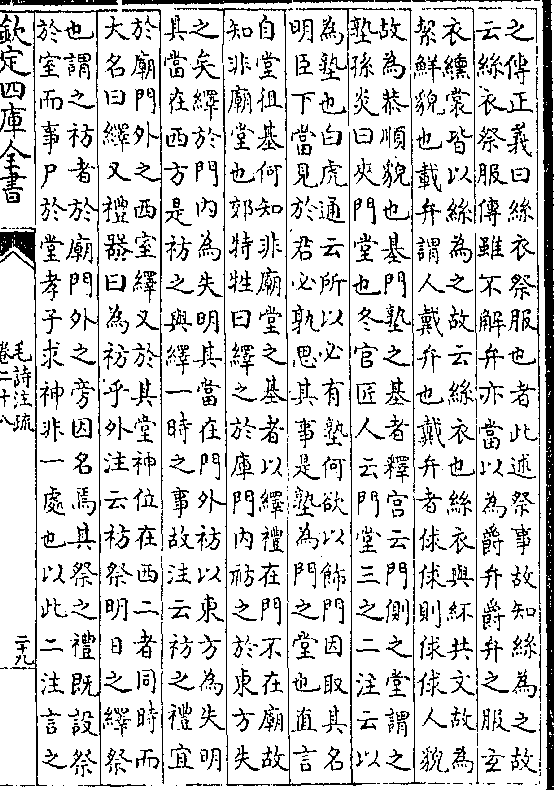 之傳正義曰絲衣祭服也者此述祭事故知絲為之故
云絲衣祭服傳雖不解弁亦當以為爵弁爵弁之服玄
衣纁裳皆以絲為之故云絲衣也絲衣與紑共文故為
絜鮮貌也載弁謂人戴弁也戴弁者俅俅則俅俅人貌
故為恭順貌也基門塾之基者釋宫云門側之堂謂之
塾孫炎曰夾門堂也冬官匠人云門堂三之二注云以
為塾也白虎通云所以必有塾何欲以飾門因取其名
明臣下當見於君必孰思其事是塾為門之堂也直言
自堂徂基何知非廟堂之基者以繹禮在門不在廟故
知非廟堂也郊特牲曰繹之於庫門内祊之於東方失
之矣繹於門内為失明其當在門外祊以東方為失明
其當在西方是祊之與繹一時之事故注云祊之禮宜
於廟門外之西室繹又於其堂神位在西二者同時而
大名曰繹又禮器曰為祊乎外注云祊祭明日之繹祭
也謂之祊者於廟門外之旁因名焉其祭之禮既設祭
於室而事尸於堂孝子求神非一處也以此二注言之
欽定四庫全書
毛詩注疏
卷二十八
二十九